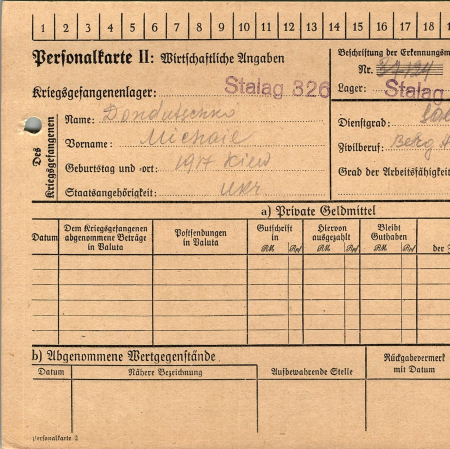 1 2 3 4 5 6 7 8 9 10 11 12 13 14 15 16 17 18
Personalkarte II: Wirtschaftliche Angaben
Beschriftung der Erkennungsm
Nr. 32124
Kriegsgefangenenlager: Stalag 326
Lager: Stalag
Des Kriegsgefangenen
Name: Dondutschko
Dienstgrad: Sol
Vorname: Michail
Zivilberuf: Berg
Geburtstag und -ort: 1917 Kiew
Grad der Arbeitsfähigkeit
Staatsangehörigkeit: Ukr
a) Private Geldmittel
Datum
Dem Kriegsgefangenen abgenommene Beträge in Valuta
Postsendungen in Valuta
Gutschrift in
RM Rpf
Hiervon ausgezahlt
RM Rpf
Bleibt Guthaben
RM Rpf
der
b) Abgenommene Wertgegenstände
Rückgabevermerk mit Datum
Datum
Nähere Bezeichnung
Aufbewahrende Stelle
Personalkarte 2